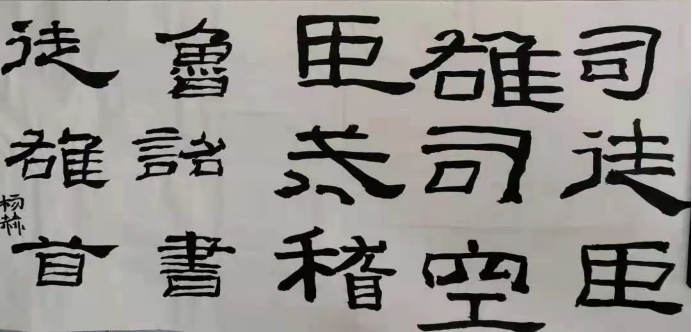 司徒臣
雄司空
臣戒稽
魯詔書
徒雄首
杨赫